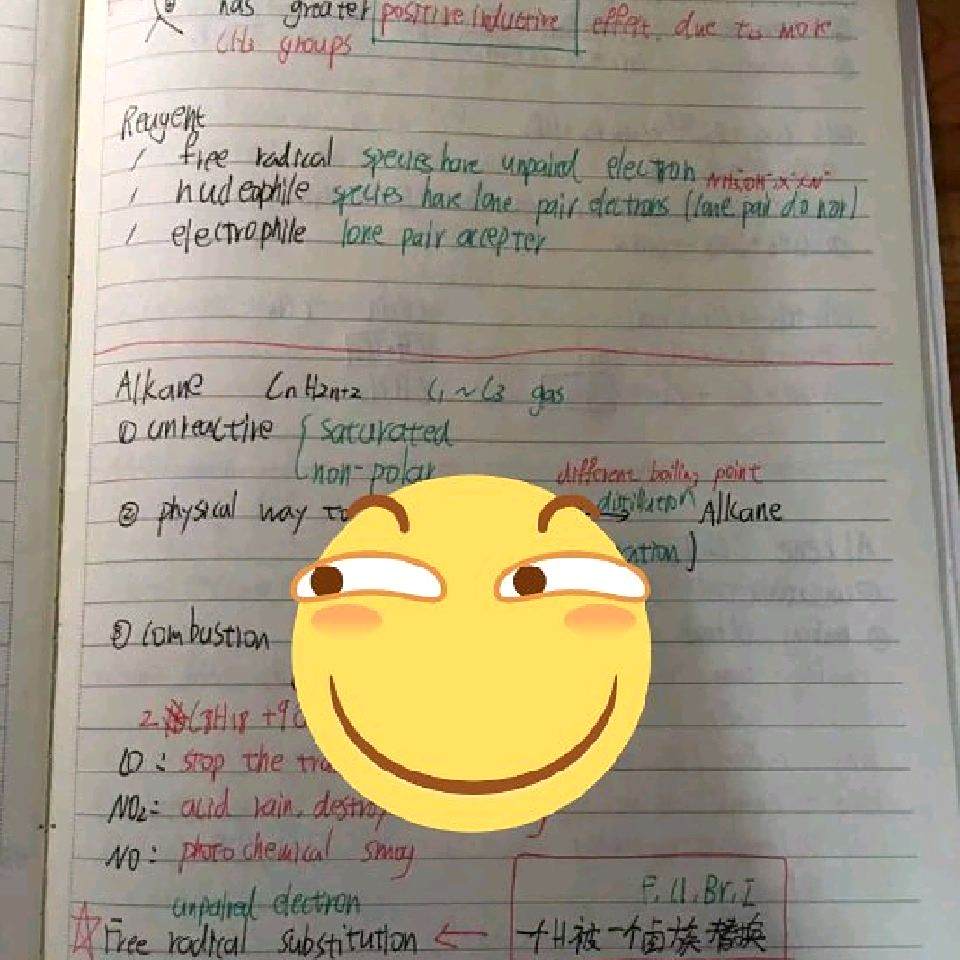 has greater positive inductive effect due to more
CH3 groups
Reagent
/ free radical species have unpaired electron
/ nucleophile species have lone pair electrons (lone pair donor)
/ electrophile lone pair accepter
Alkane CnH2n+2 C1~C3 gas
① unreactive { saturated
non-polar
different boiling point
② physical way to distillution Alkane
③ combustion
2 C8H18 +
CO : stop the
NO2: acid rain, destroy
NO : photochemical smog
unpaired electron
F, Cl, Br, I
☆ Free radical substitution ← 一个H被一个卤族替换